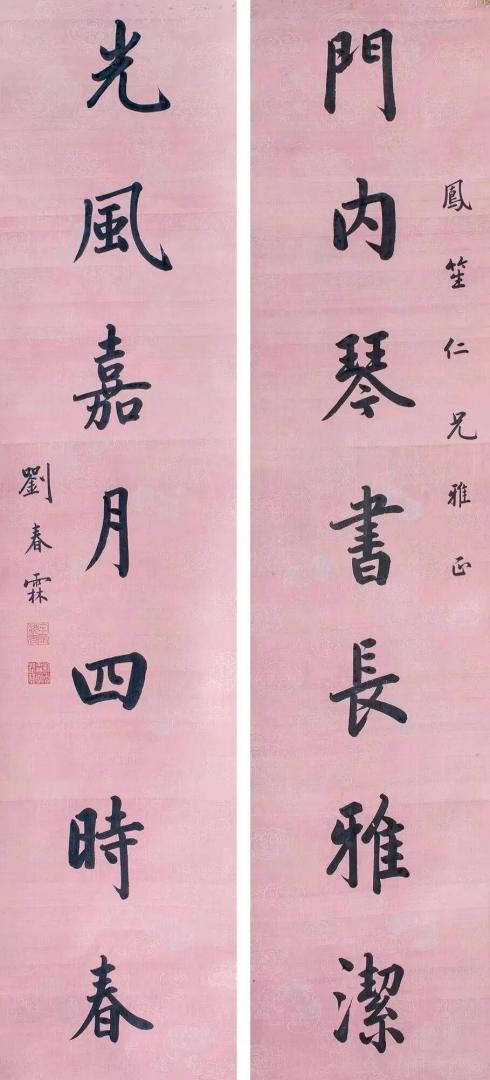 鳳笙仁兄雅正
門内琴書長雅潔
光風嘉月四時春
劉春霖